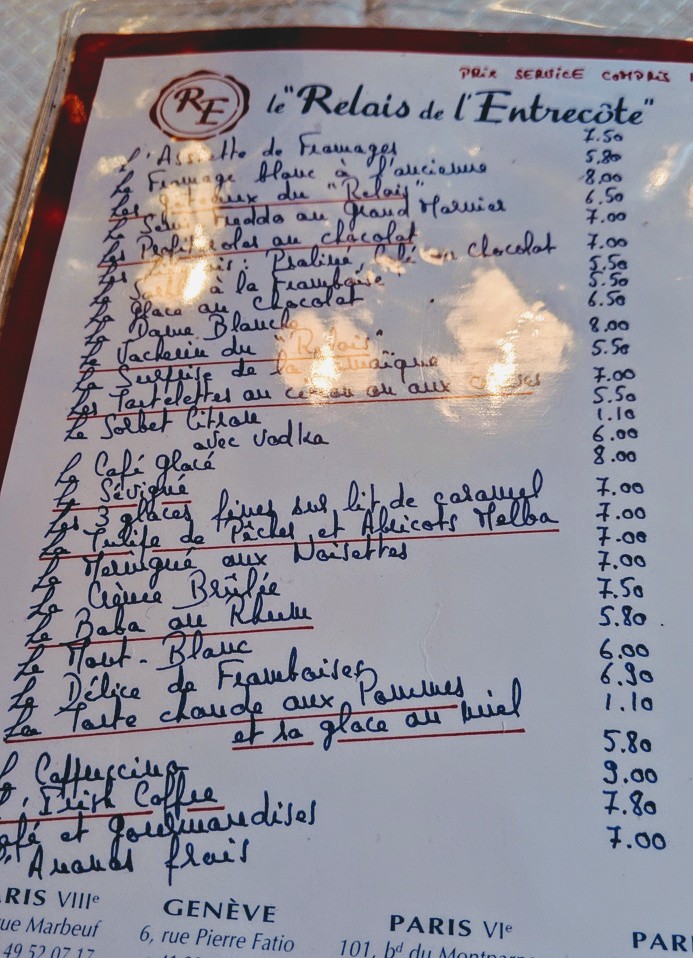 PRIX SERVICE COMPRIS
RE le "Relais de l'Entrecôte"
L'Assiette de Fromages 7.50
Le Fromage blanc à l'ancienne 5.80
Les gâteaux du "Relais" 8.00
Le Semi Freddo au Grand Marnier 6.50
Les Profiteroles au chocolat 7.00
Les : Praliné, Café ou Chocolat 7.00
à la Framboise 5.50
La glace au Chocolat 5.50
La Dame Blanche 6.50
Le Vacherin du "Relais" 8.00
La Surprise de la Jamaïque 5.50
Les Tartelettes au citron ou aux 7.00
Le Sorbet Citron 5.50
avec Vodka 1.10
Le Café glacé 6.00
Le Sévigné 8.00
Les 3 glaces fines sur lit de caramel 7.00
La Tulipe de Pêches et Abricots Melba 7.00
Le Meringué aux Noisettes 7.00
La Crème Brûlée 7.00
Le Baba au Rhum 7.50
Le Mont-Blanc 5.80
Le Délice de Framboises 6.00
La Tarte chaude aux Pommes 6.90
et sa glace au miel 1.10
Cappuccino 5.80
L'Irish Coffee 9.00
Café et gourmandises 7.80
Ananas frais 7.00
PARIS VIIIe GENÈVE PARIS VIe PAR
rue Marbeuf 6, rue Pierre Fatio 101, bd du Montparn
49 52 07 17